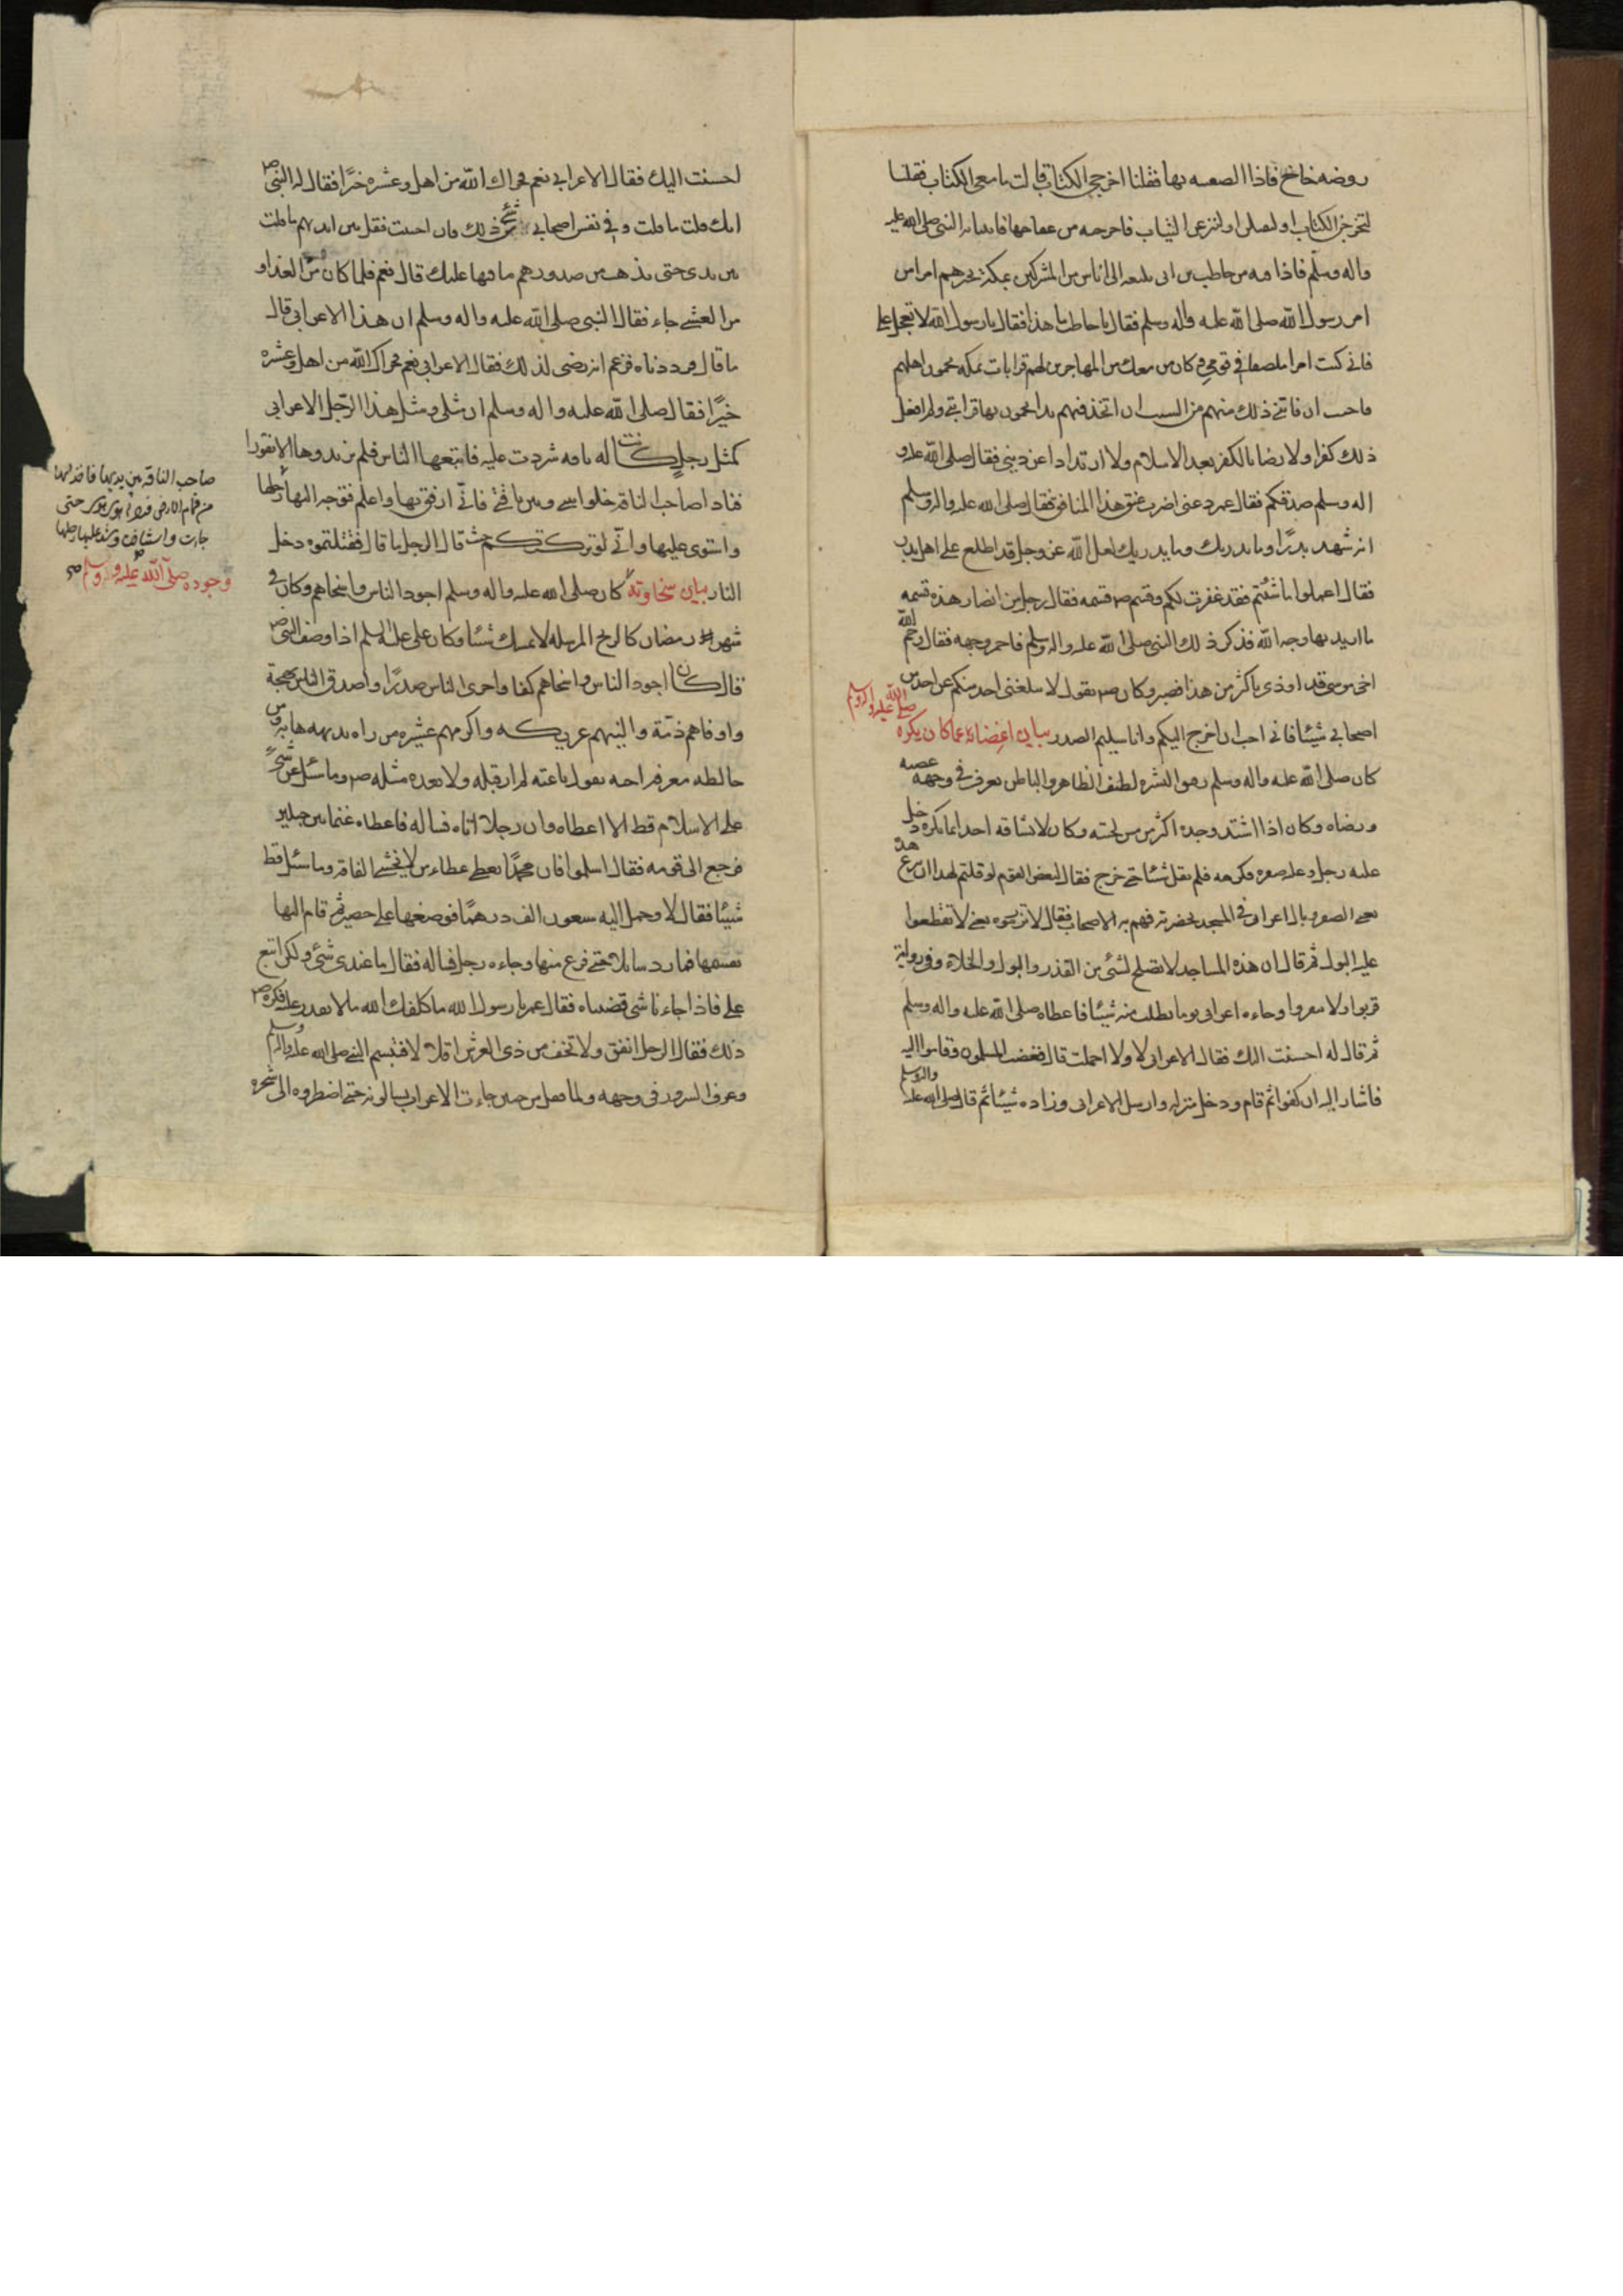 روضه خاخ فاذا الصعينه بها فقلنا اخرجي الكتاب قالت ما معي الكتاب فقلنا
لتخرجن الكتاب او لنصلن او لننزعن الثياب فاخرجته من عقاصها فاتينا به النبي صلى الله عليه
واله وسلم فاذا فيه من حاطب بن ابي بلتعه الى اناس من المشركين بمكة يخبرهم امرا من
امر رسول الله صلى الله عليه واله وسلم فقال يا حاطب ما هذا فقال يا رسول الله لا تعجل علي
فاني كنت امرا ملصقا في قومي وكان من معك من المهاجرين لهم قرابات بمكه يحمون اهليهم
فاحببت ان فاتني ذلك منهم من النسب ان اتخذ فيهم يدا يحمون بها قرابتي ولم افعل
ذلك كفرا ولا رضا بالكفر بعد الاسلام ولا ارتدادا عن ديني فقال صلى الله عليه و
اله وسلم صدقكم فقال عمر دعني اضرب عنق هذا المنافق فقال صلى الله عليه واله وسلم
انه شهد بدرًا وما يدريك وما يدريك لعل الله عز وجل قد اطلع على اهل بدر
فقال اعملوا ما شئتم فقد غفرت لكم وقسم صم قسمه فقال رجل من انصار هذه قسمه
ما اريد بها وجه الله فذكر ذلك النبي صلى الله عليه واله وسلم فاحمر وجهه فقال رحم الله
اخي موسى قد اوذي باكثر من هذا فصبر وكان صم يقول لا يبلغني احد منكم عن احد من
اصحابي شيئا فاني احب ان اخرج اليكم وانا سليم الصدر بيان اغضائه عما كان يكره
صلى الله عليه واله وسلم
كان صلى الله عليه واله وسلم رقيق البشره لطيف الظاهر والباطن يعرف في وجهه غضبه
ورضاه وكان اذا اشتد وجده اكثر من مس لحيته وكان لا يشافه احدا بما يكره دخل
عليه رجل وعليه صفره فكرهه فلم يقل شيئا حتى خرج فقال لبعض القوم لو قلتم لهذا ان يدع هذه
يعني الصفره بال اعرابي في المسجد بحضرته فهم به الاصحاب فقال لا تزرموه يعني لا تقطعوا
عليه البول ثم قال ان هذه المساجد لا تصلح لشئ من القذر والبول والخلاء وفي رواية
قربوا ولا تنفروا وجاءه اعرابي يوما يطلب منه شيئا فاعطاه صلى الله عليه واله وسلم
ثم قال له احسنت اليك فقال الاعرابي لا ولا اجملت قال فغضب المسلمون وقاموا اليه
فاشار اليه ان كفوا ثم قام ودخل منزله وارسل الاعرابي وزاده شيئا ثم قال صلى الله عليه واله وسلم
احسنت اليك فقال الاعرابي نعم فجزاك الله من اهل وعشيره خيرًا فقال له النبي صم
انك قلت ما قلت وفي نفس اصحابي شئ من ذلك فان احببت فقل بين ايديهم ما قلت
بين يدي حتى يذهب من صدورهم ما فيها عليك قال نعم فلما كان من الغد او
من العشي جاء فقال النبي صلى الله عليه واله وسلم ان هذا الاعرابي قال
ما قال فزدناه فزعم انه رضي لذلك فقال الاعرابي نعم فجزاك الله من اهل وعشيره
خيرًا فقال صلى الله عليه واله وسلم ان مثلي ومثل هذا الرجل الاعرابي
كمثل رجل كانت له ناقه شردت عليه فاتبعها الناس فلم يزيدوها الا نفورا
فنادا صاحب الناقه خلوا بيني وبين ناقتي فاني ارفق بها واعلم فتوجه اليها
صاحب الناقه بين يديها فاخذ لها
من قمام الارض فردها هوى هوى حتى
جاءت واستناخت وشد عليها رحلها
واستوى عليها واني لو تركتكم حيث قال الرجل ما قال فقتلتموه دخل
النار بيان سخاوته وجوده صلى الله عليه وآله وسلم كان صلى الله عليه واله وسلم اجود الناس واسخاهم وكان في
شهر رمضان كالريح المرسله لا يمسك شيئا وكان علي عليه السلم اذا وصف النبي صم
قال كان اجود الناس واسخاهم كفا واجرى الناس صدرًا واصدق الناس لهجة
واوفاهم ذمة والينهم عريكه واكرمهم عشيره من راه بديهه هابه ومن
خالطه معرفه احبه يقول ناعته لم ار قبله ولا بعده مثله صم وما سئل عن شئ
على الاسلام قط الا اعطاه وان رجلا اتاه فساله فاعطاه غنما بين جبلين
فرجع الى قومه فقال اسلموا فان محمدًا يعطي عطاء من لا يخشى الفاقه وما سئل قط
شيئا فقال لا وحمل اليه سبعون الف درهمًا فوضعها على حصير ثم قام اليها
يقسمها فما رد سائلا حتى فرغ منها وجاءه رجل فساله فقال ما عندي شئ ولكن اتبع
علي فاذا جاءنا شئ قضيناه فقال عمر يا رسول الله ما كلفك الله ما لا تقدر عليه فكره صم
ذلك فقال الرجل انفق ولا تخف من ذي العرش اقلالا فتبسم النبي صلى الله عليه واله وسلم
وعرف السرور في وجهه ولما قفل من حنين جاءت الاعراب يسالونه حتى اضطروه الى شجره